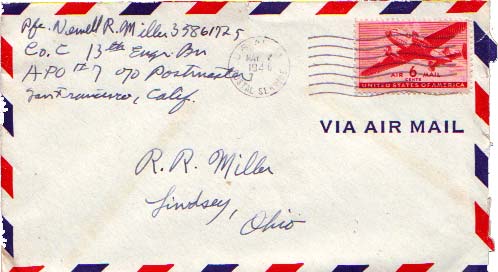 Pfc. Newell R. Miller 35861725
Co. C 13th Engr. Bn
APO #7 c/o Postmaster
San Francisco, Calif.
MAY
194
POSTAL SERVICE
AIR 6 MAIL
CENTS
UNITED STATES OF AMERICA
VIA AIR MAIL
R. R. Miller
Lindsey,
Ohio